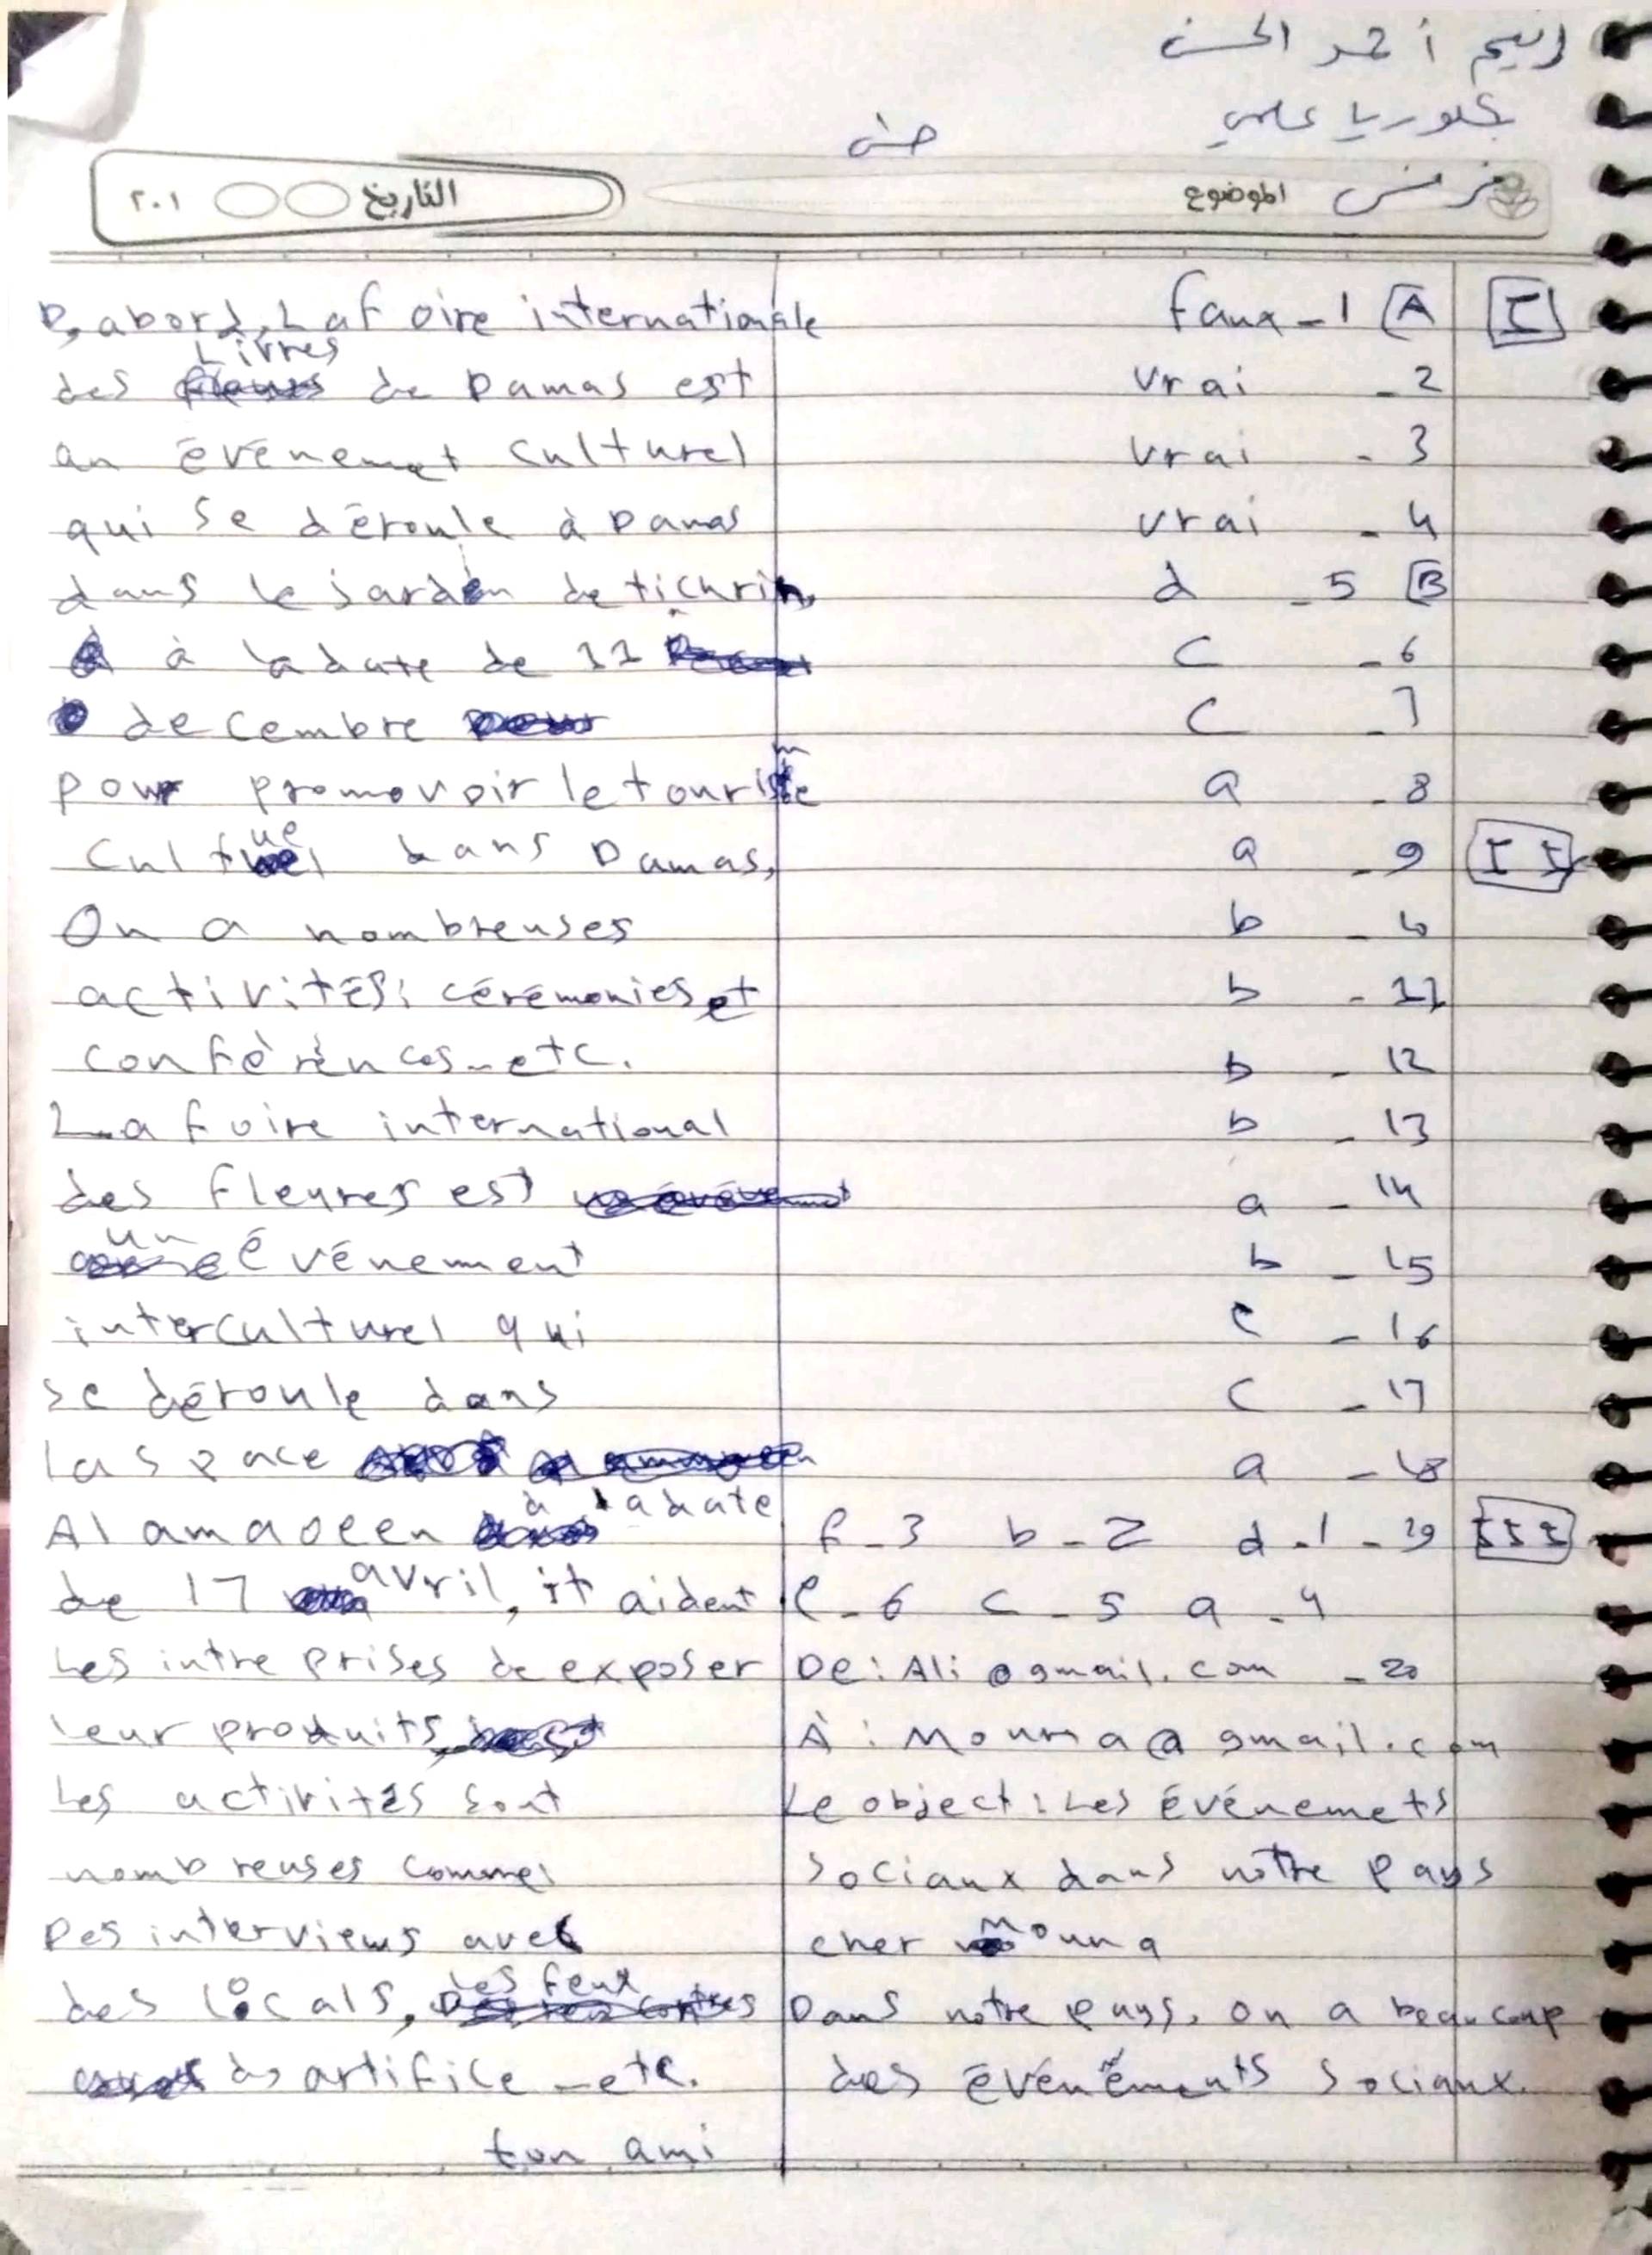 ريم أحمد الحسن
بكلوريا علمي
حمص
الموضوع فرنسي
التاريخ ٢٠١
I A 1- faux
2- vrai
3- vrai
4- vrai
B 5- d
6- c
7- c
8- a
II 9- a
10- b
11- b
12- b
13- b
14- a
15- b
16- c
17- c
18- a
III 19- 1-d 2-b 3-f
4-a 5-c 6-e
20- De: Ali@gmail.com
À: Mouna@gmail.com
Le object: Les événemets
sociaux dans notre pays
cher Mouna
Dans notre pays, on a beaucoup
des événements sociaux.
D,abord, La foire internationale
des Livres de Damas est
an événemet culturel
qui se déroule à Damas
dans le jardin de tichrin,
à la date de 11
decembre
pour promovoir le tourisme
cultuel dans Damas,
On a nombreuses
activités: cérémonies et
conférences_etc.
La foire international
des fleures est
un événement
interculturel qui
se déroule dans
la space
Al amaoeen à la date
de 17 avril, it aident
Les intreprises de exposer
leur produits
Les activités sont
nombreuses comme:
Des interviews avec
des locals, des feux
ds artifice _etc.
ton ami